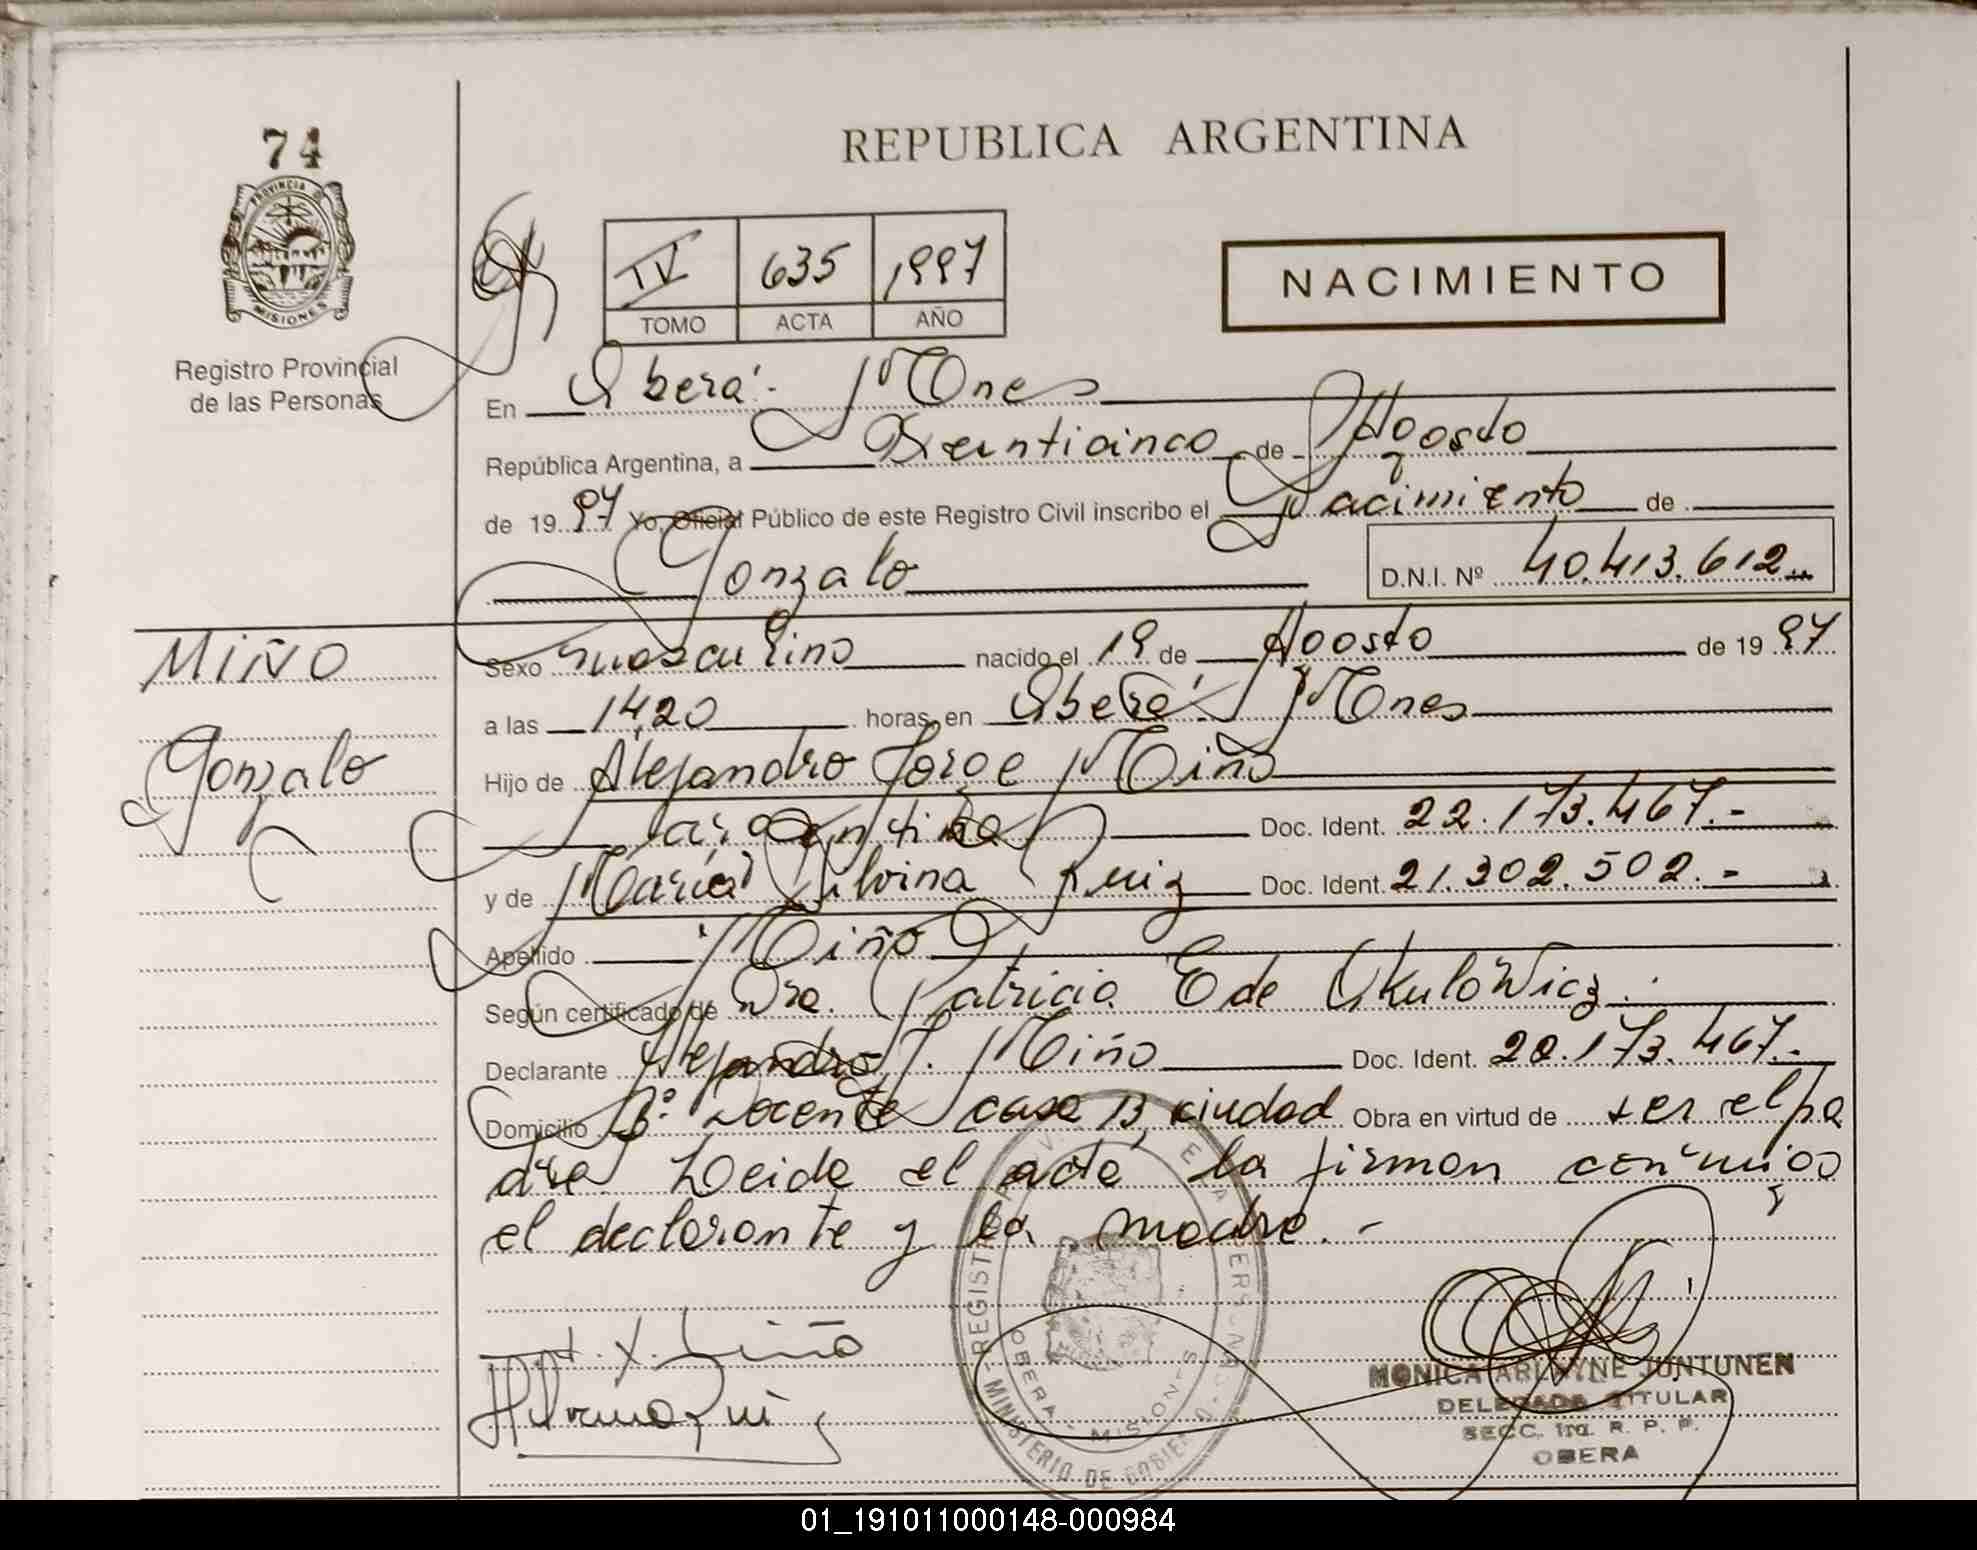 74
PROVINCIA D
MISIONES
Registro Provincial
de las Personas
REPUBLICA ARGENTINA
IV 635 1997
TOMO ACTA AÑO
NACIMIENTO
En Oberá.- Mnes
República Argentina, a Veinticinco de Agosto
de 1997 Yo, Oficial Público de este Registro Civil inscribo el Nacimiento de
Gonzalo D.N.I. Nº 40.413.612..
MIÑO
Gonzalo
Sexo masculino nacido el 19 de Agosto de 1997
a las 14,20 horas, en Oberá. Mnes
Hijo de Alejandro Jorge Miño
argentina Doc. Ident. 22.173.467.-
y de María Silvina Ruiz Doc. Ident. 21.302.502.-
Apellido Miño
Según certificado de Dra. Patricia E de Okulowicz.
Declarante Alejandro J. Miño Doc. Ident. 22.173.467.-
Domicilio Bº Docente casa 13, ciudad Obra en virtud de ser el pa
dre. Leida el acta la firman conmigo
el declarante y la madre.-
Silvina Ruiz
MONICA ARLAYNE JUNTUNEN
DELEGADA TITULAR
SECC. 1ra. R. P. P.
OBERA
OBERA - MISIONES
MINISTERIO DE GOBIE
01_191011000148-000984